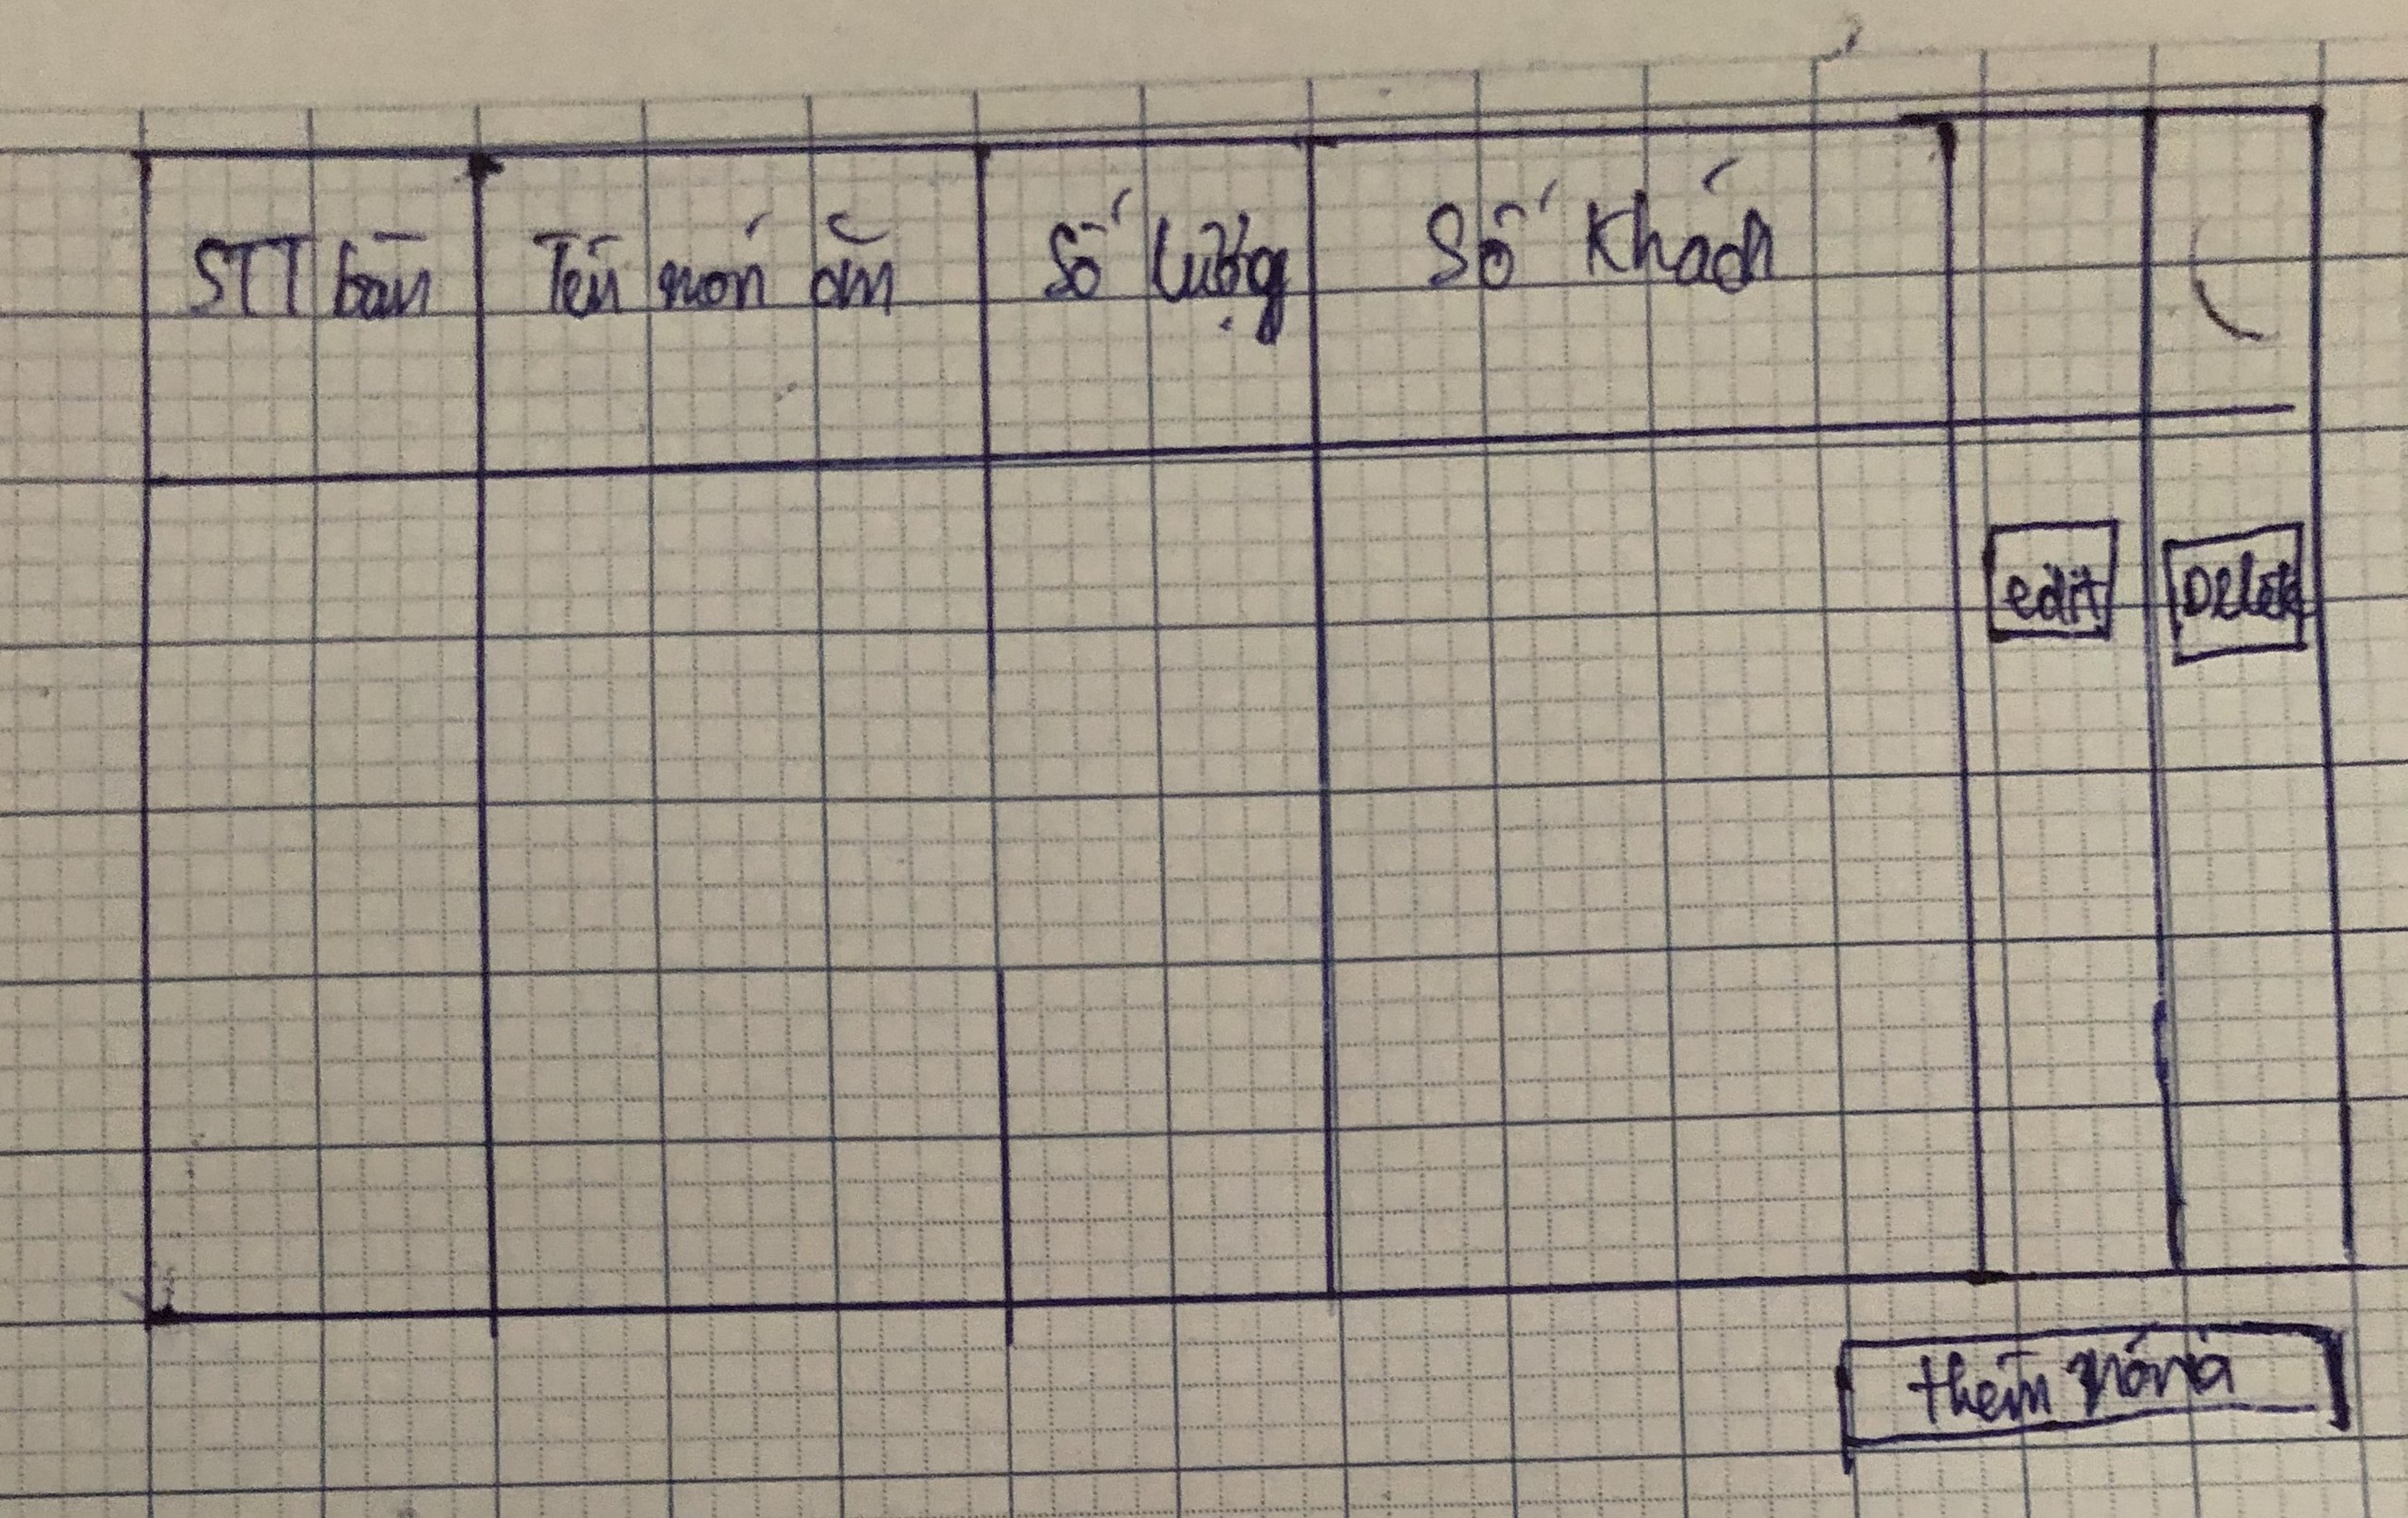 STT bàn Tên món ăn Số lượng Số Khách
edit Delete
thêm món